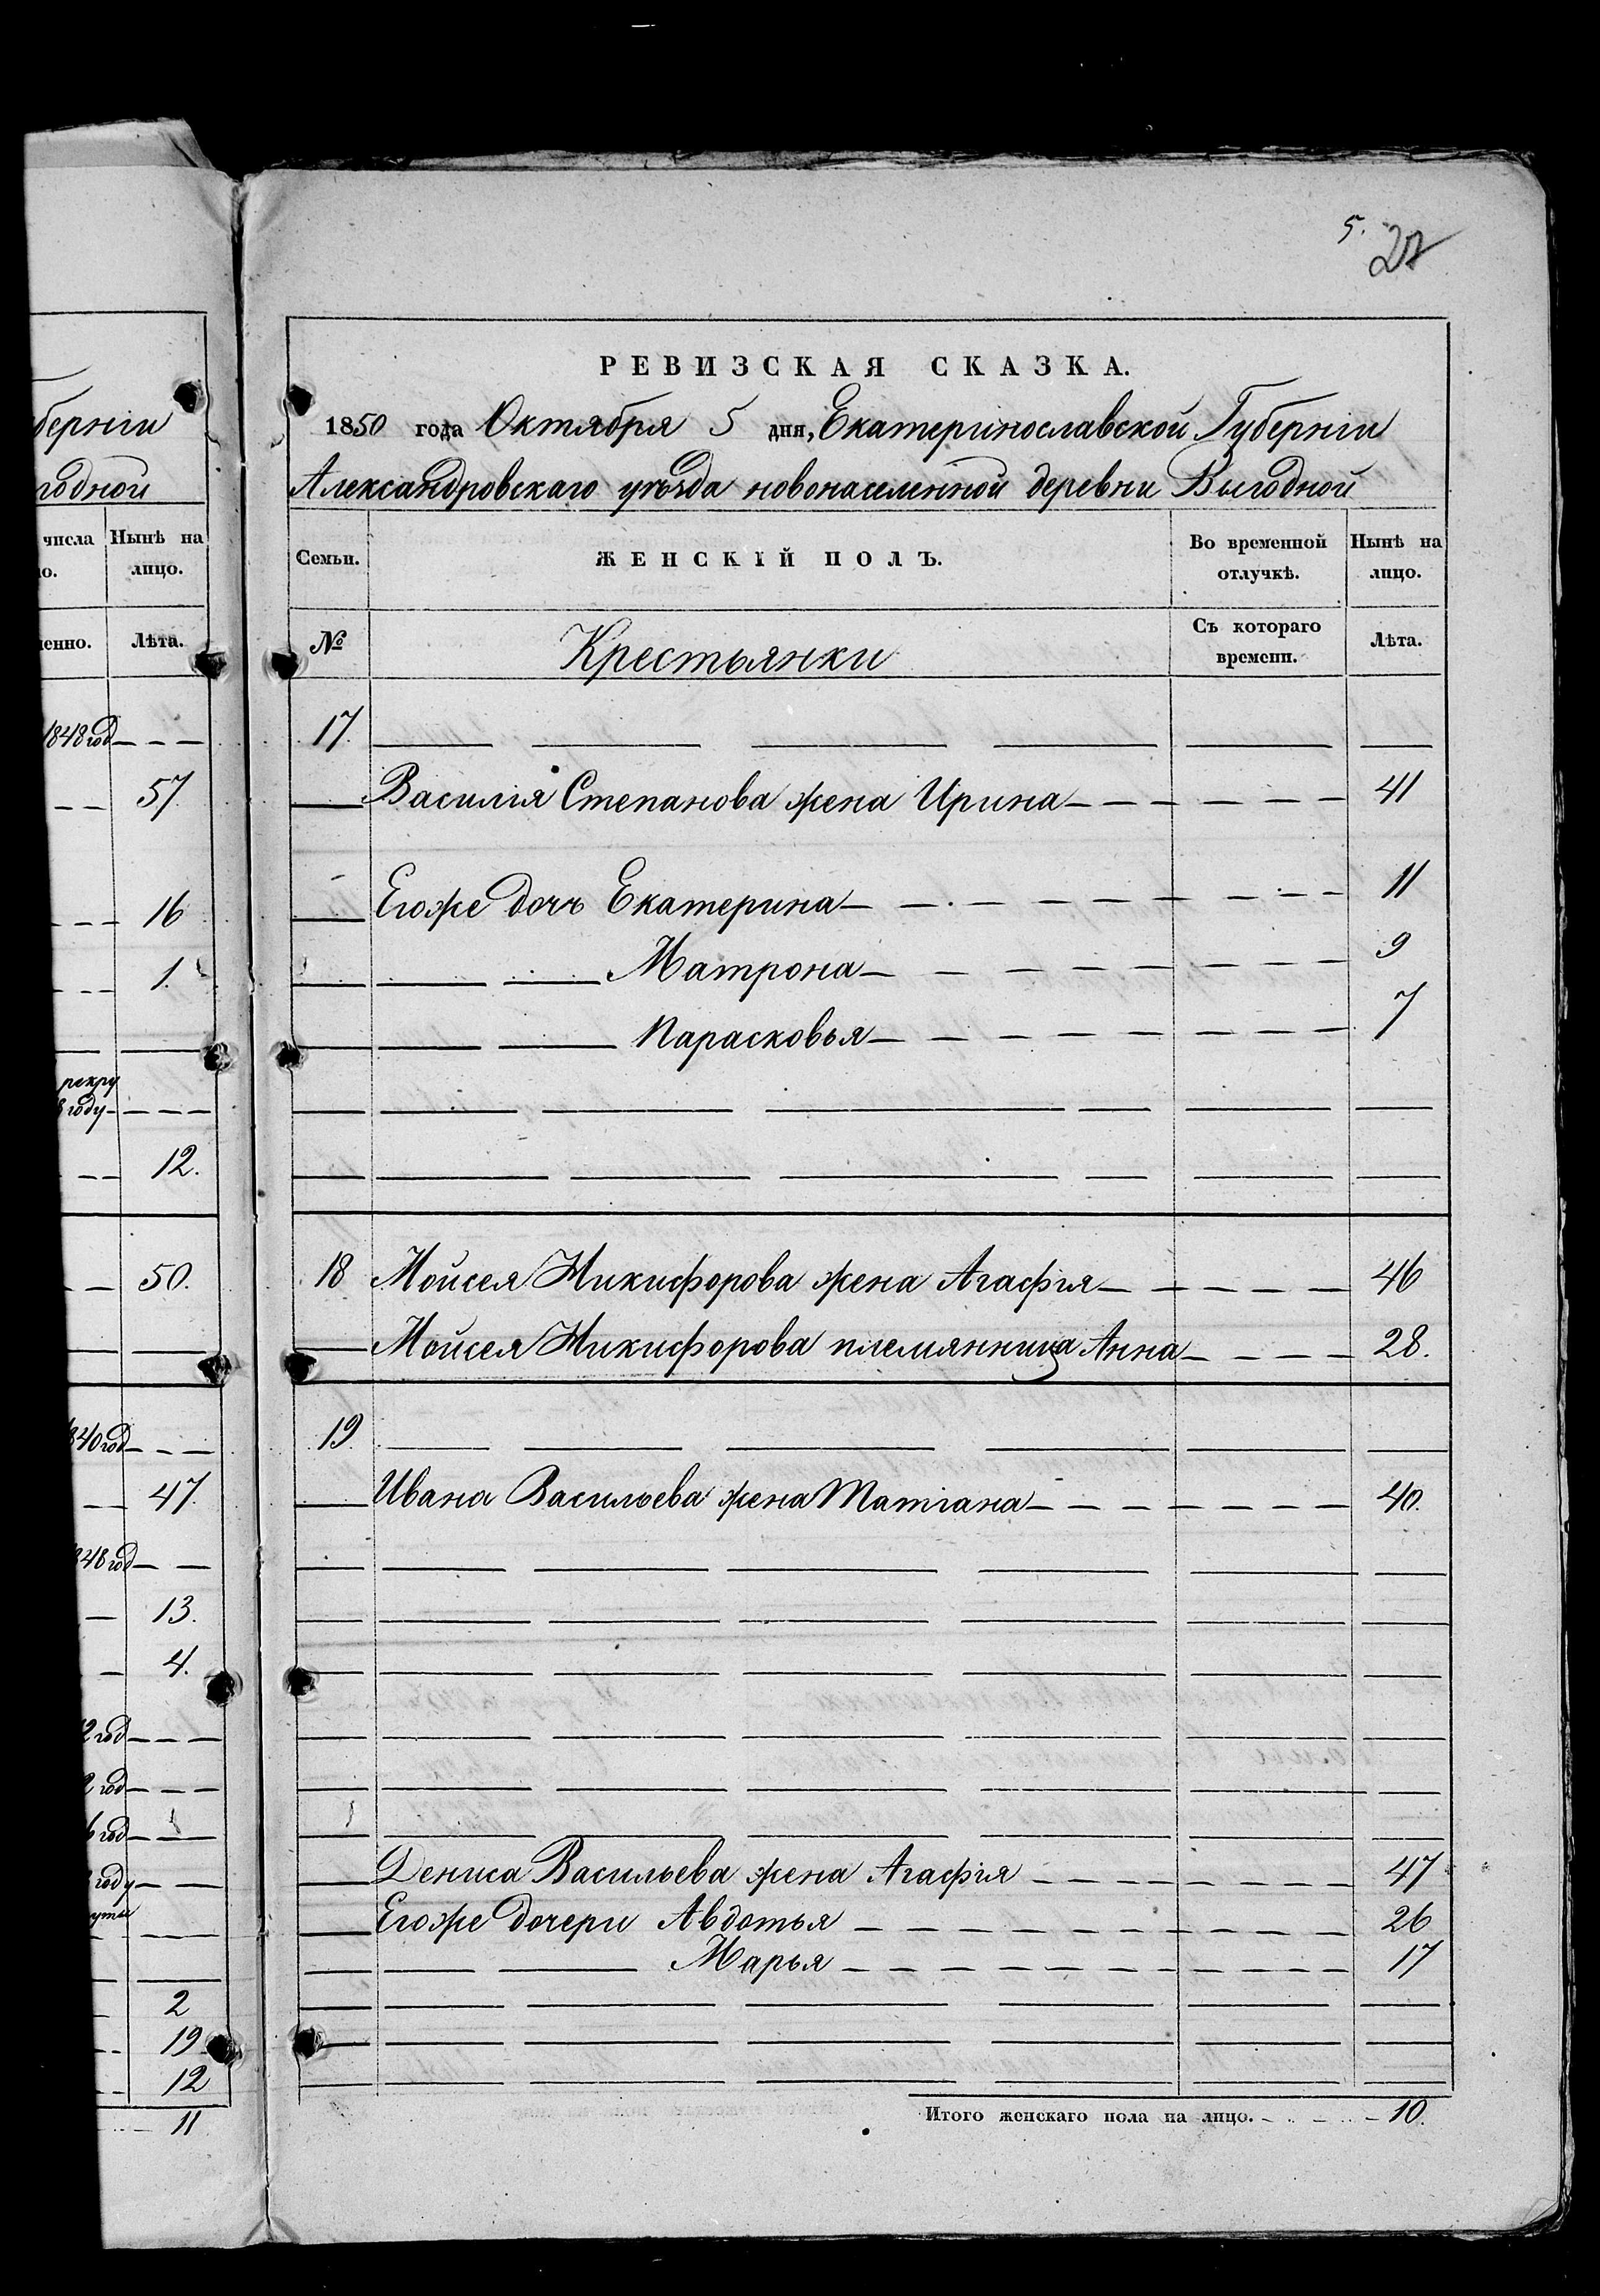 5.
27
РЕВИЗСКАЯ СКАЗКА.
1850 года Октября 5 дня, Екатеринославской Губерніи
Александровскаго уѣзда новонаселенной деревни Выгодной
Семьи.
ЖЕНСКІЙ ПОЛЪ.
Во временной отлучкѣ.
Нынѣ на лицо.
№
Крестьянки
Съ котораго времени.
Лѣта.
17.
Василія Степанова жена Ирина 41
Егоже дочь Екатерина 11
Матрона 9
Парасковья 7
18 Мойсея Никифорова жена Агафія 46
Мойсея Никифорова племянница Анна 28.
19.
Ивана Васильева жена Татіана 40.
Дениса Васильева жена Агафія 47
Егоже дочери Авдотья 26
Марья 17
Итого женскаго пола на лицо. 10.
берніи
годной
числа
Нынѣ на
о.
лицо.
енно.
Лѣта.
1848 год
57.
16
1.
рекру
году
12.
50.
840 год
47.
848 год
13.
4.
2 год
2 год
6 год
году
2
19
12
11